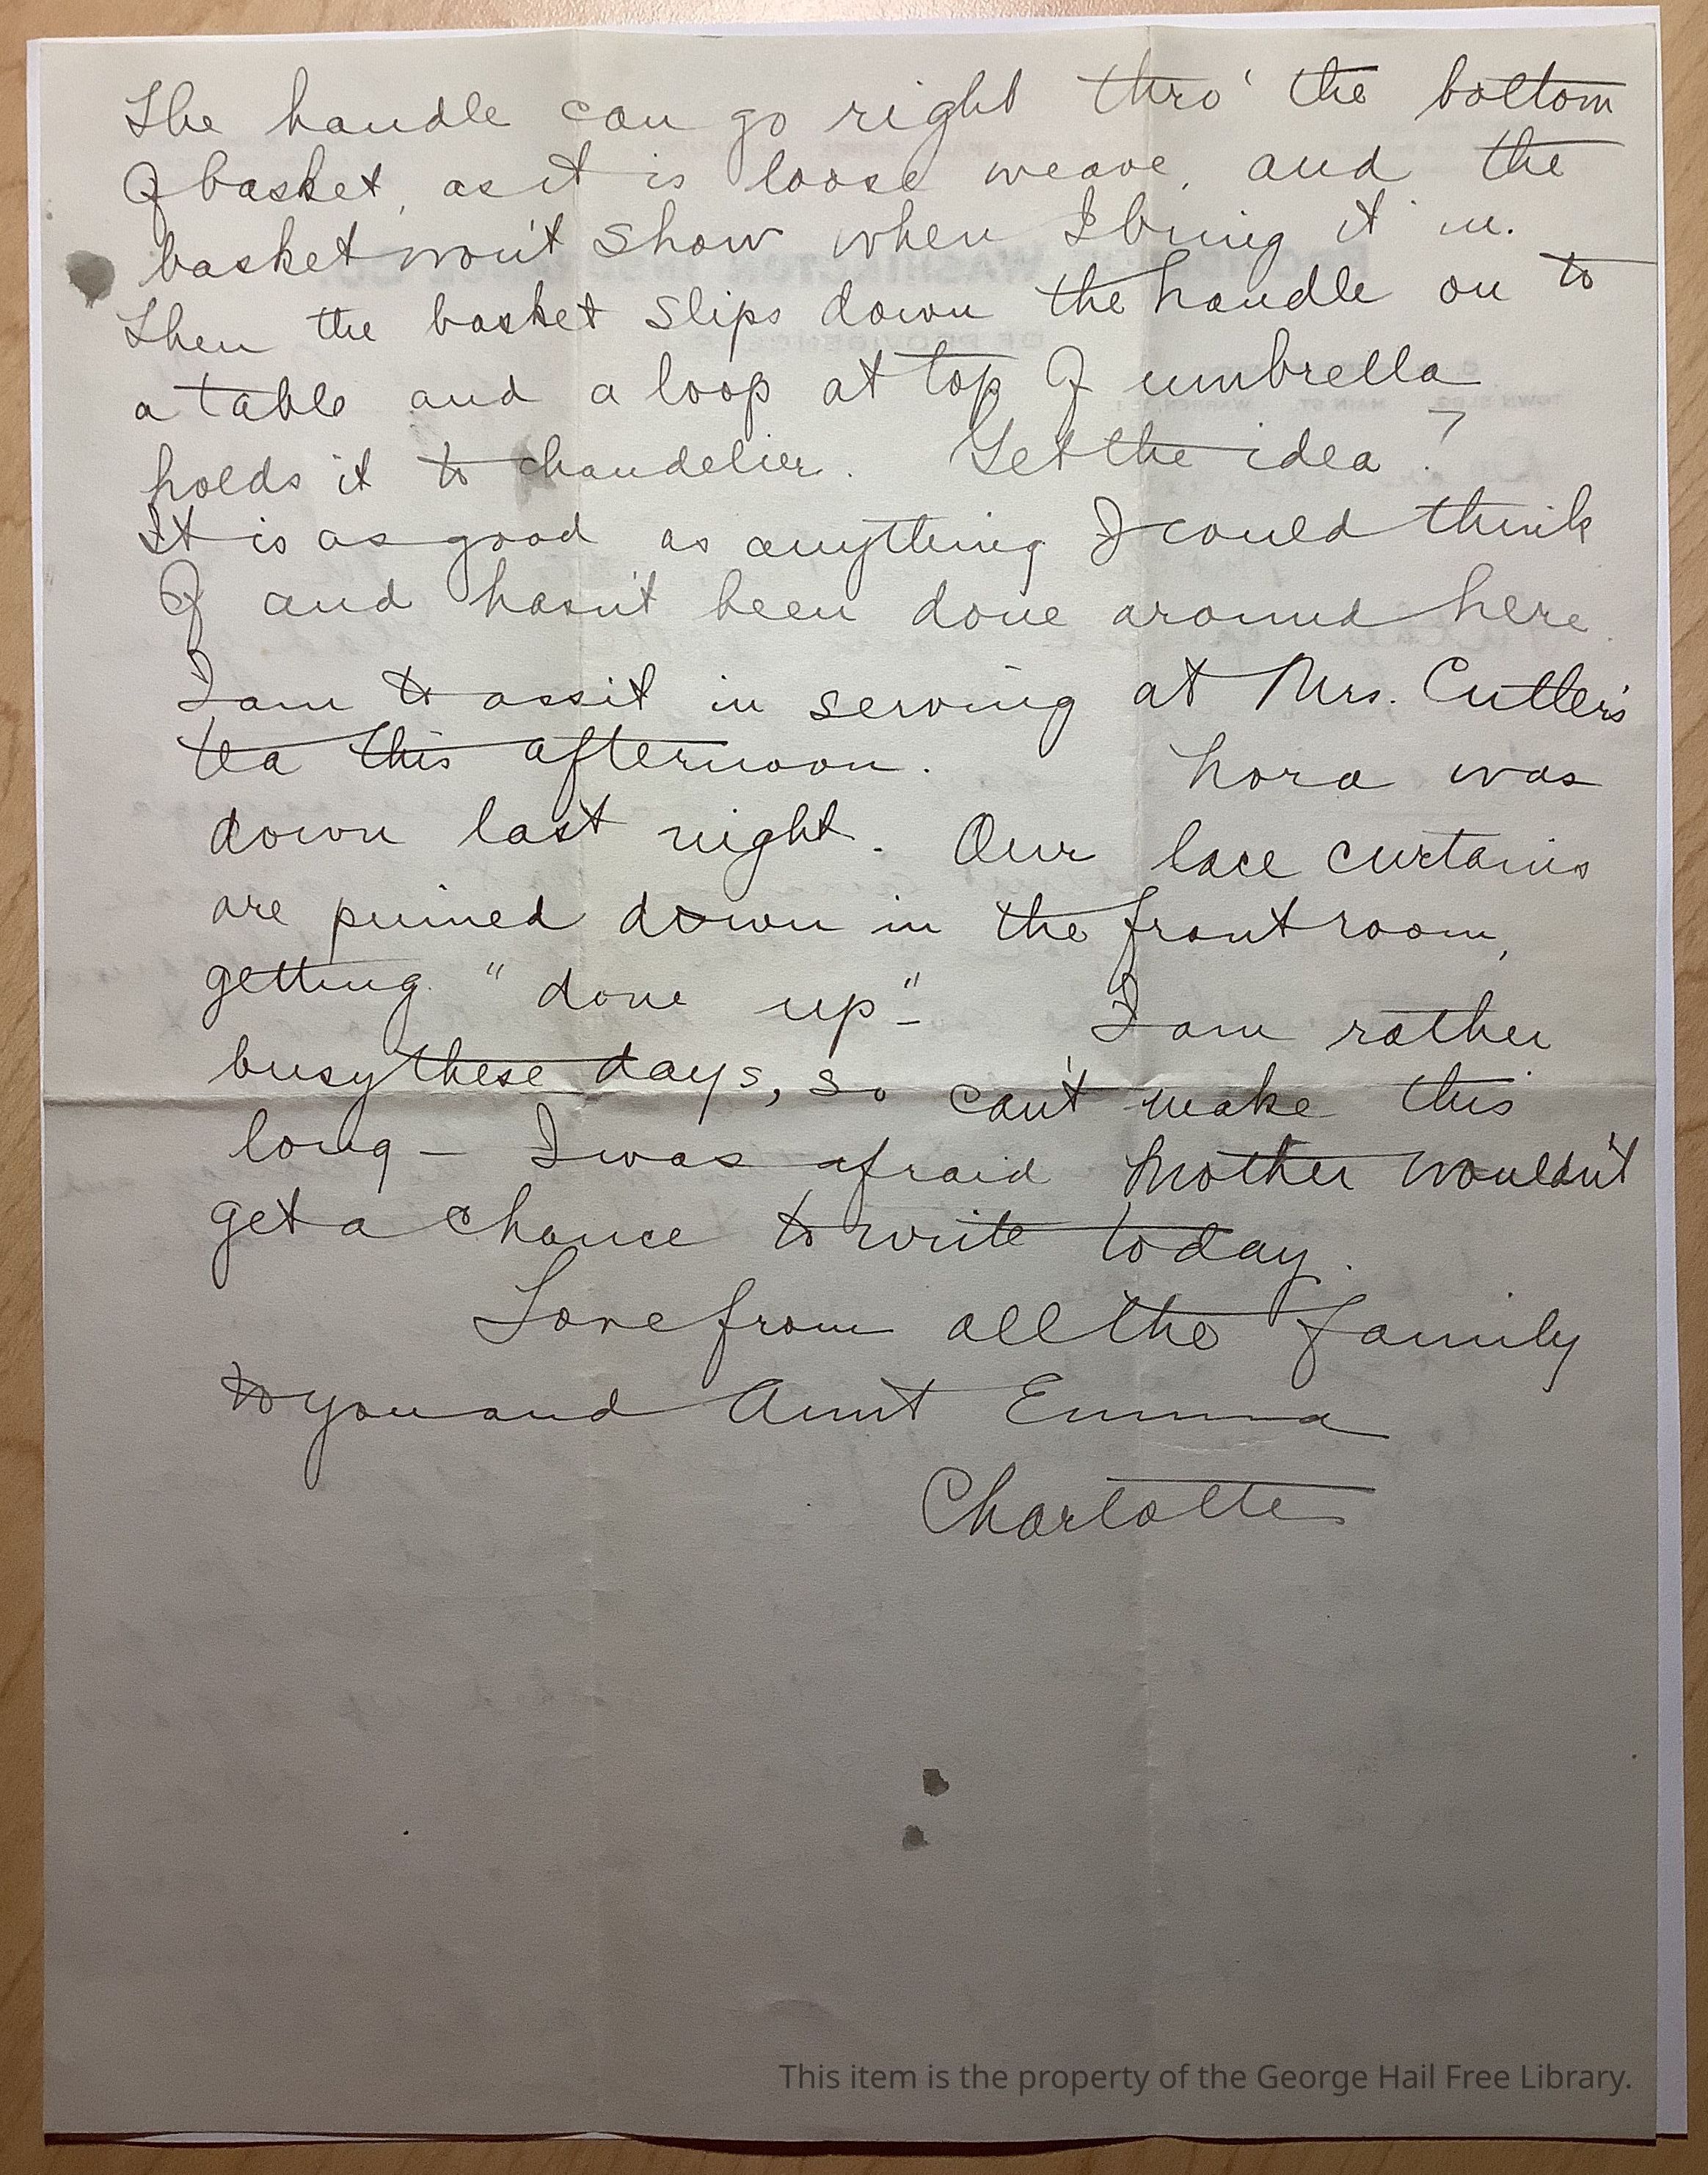 The handle can go right thro' the bottom
of basket, as it is loose weave, and the
basket won't show when I bring it in.
Then the basket slips down the handle on to
a table and a loop at top of umbrella
holds it to chandelier. Get the idea?
It is as good as anything I could think
of and hasn't been done around here.
I am to assit in serving at Mrs. Cutler's
tea this afternoon. Nora was
down last night. Our lace curtains
are pinned down in the front room,
getting "done up" - I am rather
busy these days, so can't make this
long - I was afraid Mother wouldn't
get a chance to write today.
Love from all the family
to you and Aunt Emma
Charlotte
This item is the property of the George Hail Free Library.